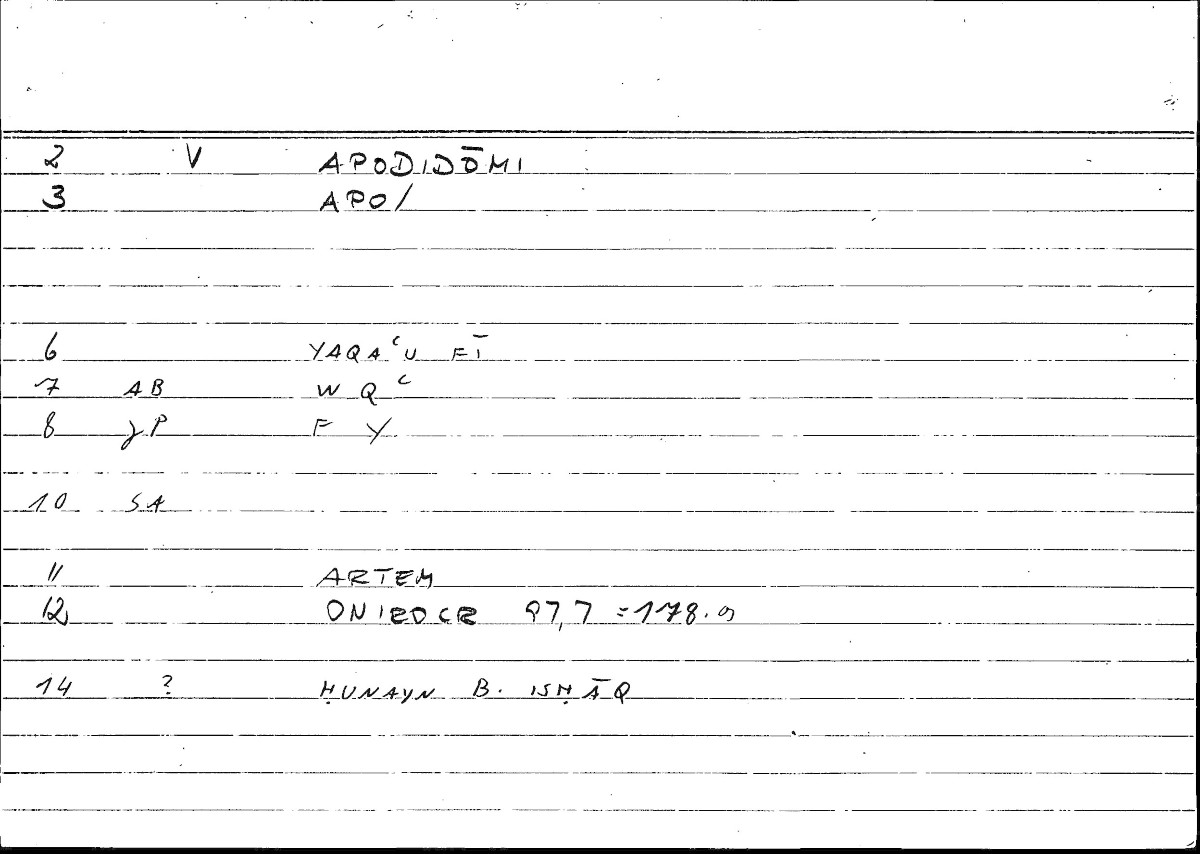 2 V APODIDŌMI
3 APO/
6 YAQAʿU FĪ
7 AB W Q ʿ
8 P F Y
10 SA
11 ARTEM
12 ONIROCR 97,7 = 178.9
14 ? ḤUNAYN B. ISḤĀQ